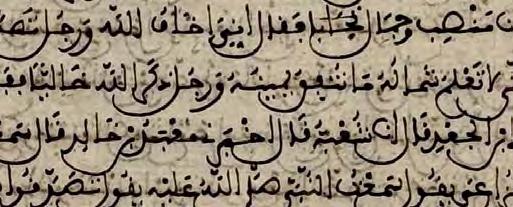 منصب وجمال فقال إني أخاف الله ورجل تصد
لا تعلم شماله ما تنفق يمينه ورجل ذكر الله خاليا ففا
بن الجعد قال انا شعبة قال اخبرني معبد بن خالد قال سمعـ
زاعي يقول سمعت النبي صلى الله عليه يقول تصدقوا